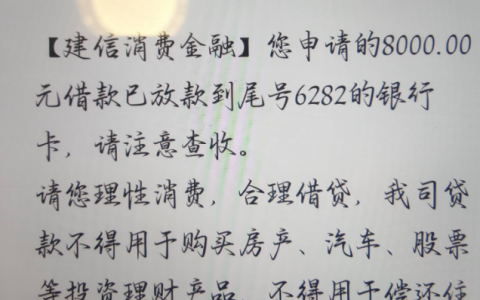 【建信消费金融】您申请的8000.00
元借款已放款到尾号6282的银行
卡，请注意查收。
请您理性消费，合理借贷，我司贷
款不得用于购买房产、汽车、股票
等投资理财产品，不得用于偿还住